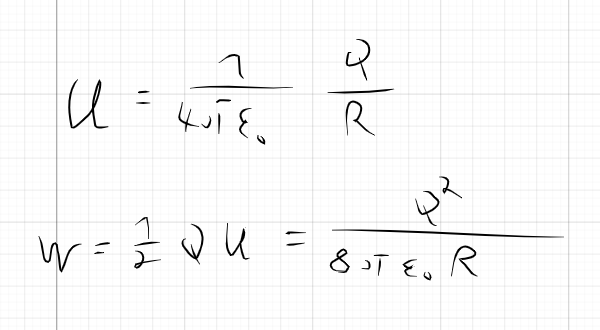 U = \frac{1}{4πε₀} \frac{Q}{R}
W = \frac{1}{2} QU = \frac{Q²}{8πε₀R}